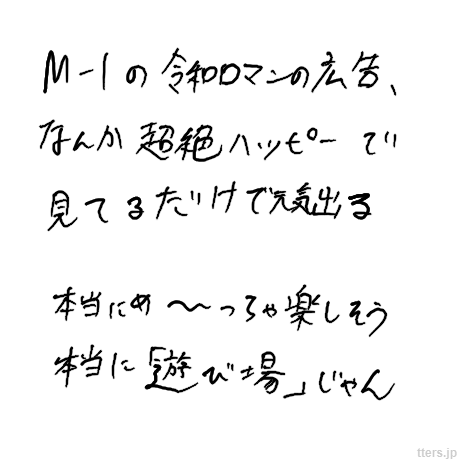 M-1の令和ロマンの広告、
なんか超絶ハッピーで
見てるだけで元気出る
本当にめ〜〜っちゃ楽しそう
本当に「遊び場」じゃん
tters.jp